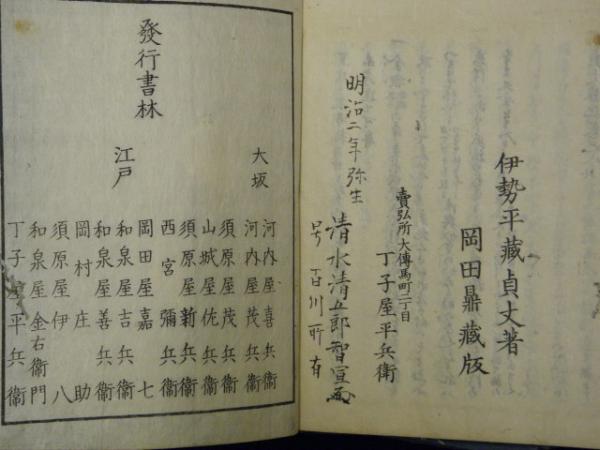 伊勢平藏貞丈著
岡田鼎藏版
賣弘所 大傳馬町二丁目
丁子屋平兵衛
明治二年弥生
清水清五郎智宣
号百川所有
發行書林
大坂
河内屋喜兵衛
河内屋茂兵衛
江戸
須原屋茂兵衛
山城屋佐兵衛
須原屋新兵衛
西宮彌兵衛
岡田屋嘉七
和泉屋吉兵衛
和泉屋善兵衛
岡村庄助
須原屋伊八
和泉屋金右衛門
丁子屋平兵衛